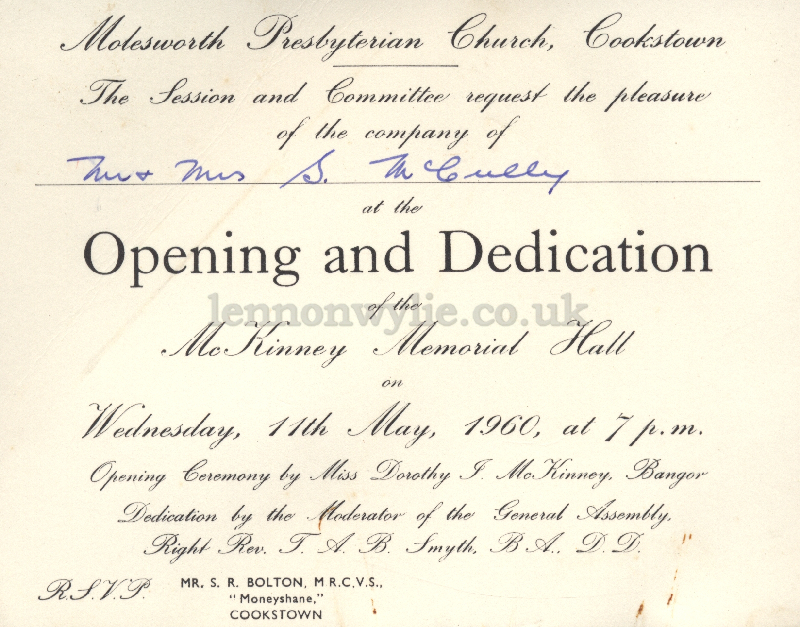 Molesworth Presbyterian Church, Cookstown
The Session and Committee request the pleasure
of the company of
Mr & Mrs S. McCully
at the
Opening and Dedication
of the
lennonwylie.co.uk
McKinney Memorial Hall
on
Wednesday, 11th May, 1960, at 7 p.m.
Opening Ceremony by Miss Dorothy I. McKinney, Bangor
Dedication by the Moderator of the General Assembly,
Right Rev. T. A. B. Smyth, B.A., D.D.
R.S.V.P. MR. S. R. BOLTON, M R.C.V.S.,
"Moneyshane,"
COOKSTOWN